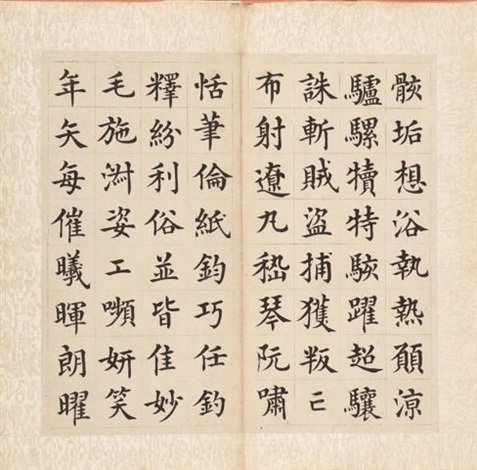 骸垢想浴執熱願涼
驢騾犢特駭躍超驤
誅斬賊盜捕獲叛亡
布射遼丸嵇琴阮嘯
恬筆倫紙鈞巧任釣
釋紛利俗並皆佳妙
毛施淑姿工嚬妍笑
年矢每催曦暉朗曜